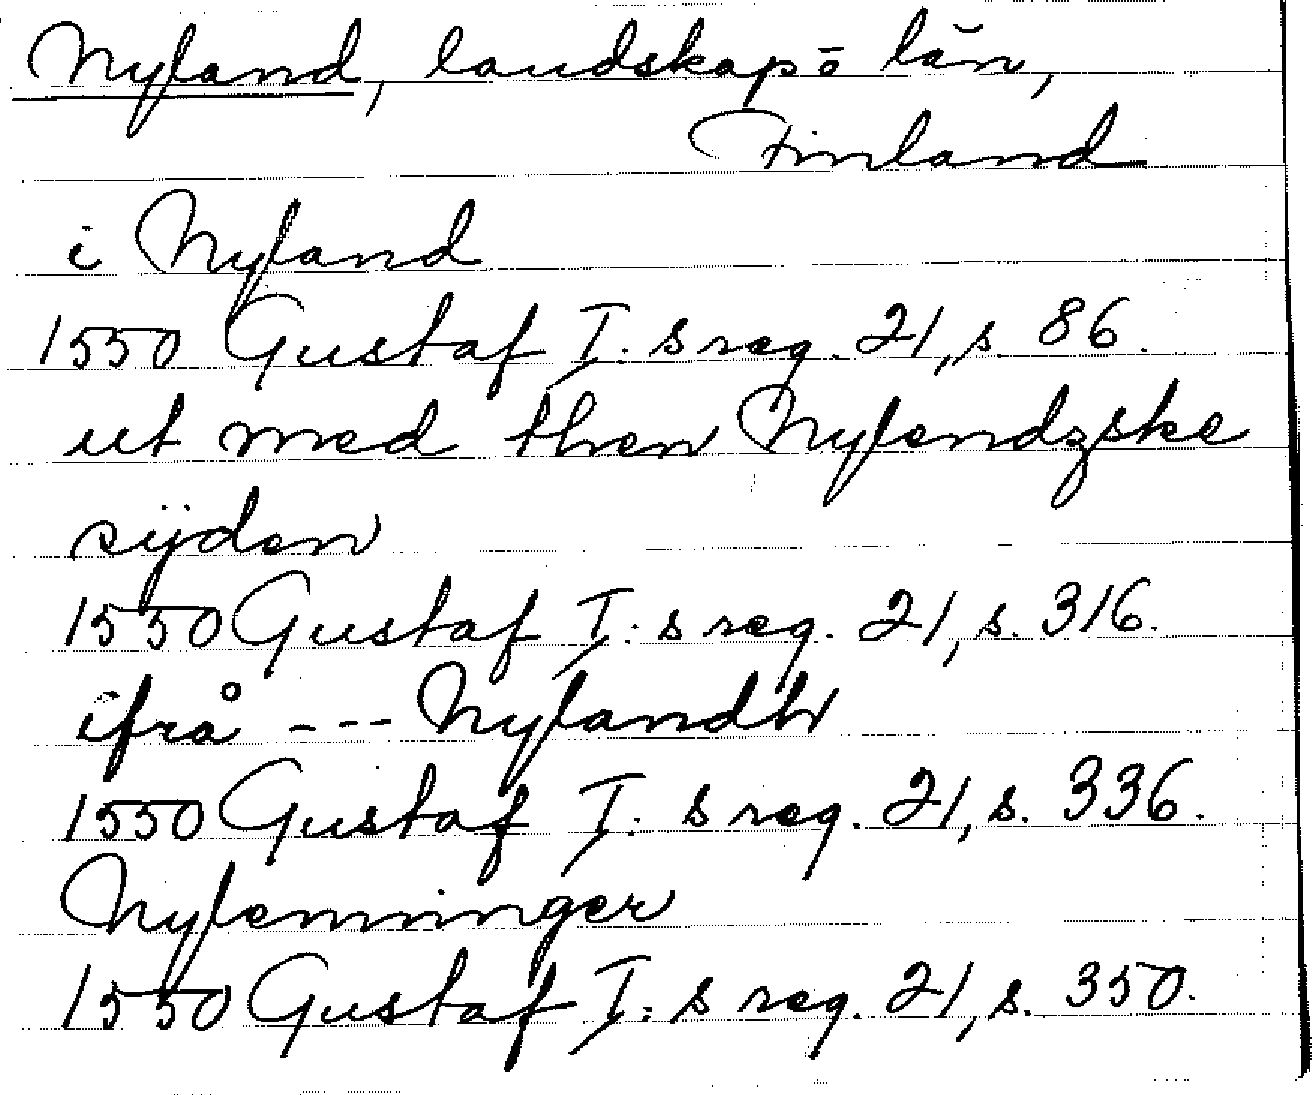 Nyland, landskap o län,
Finland
i Nyland
1550 Gustaf I:s reg. 21, s. 86.
ut med then Nylendzske
sijden
1550 Gustaf I:s reg. 21, s. 316.
ifrå --- Nylandh
1550 Gustaf I:s reg. 21, s. 336.
Nylenninger
1550 Gustaf I:s reg. 21, s. 350.